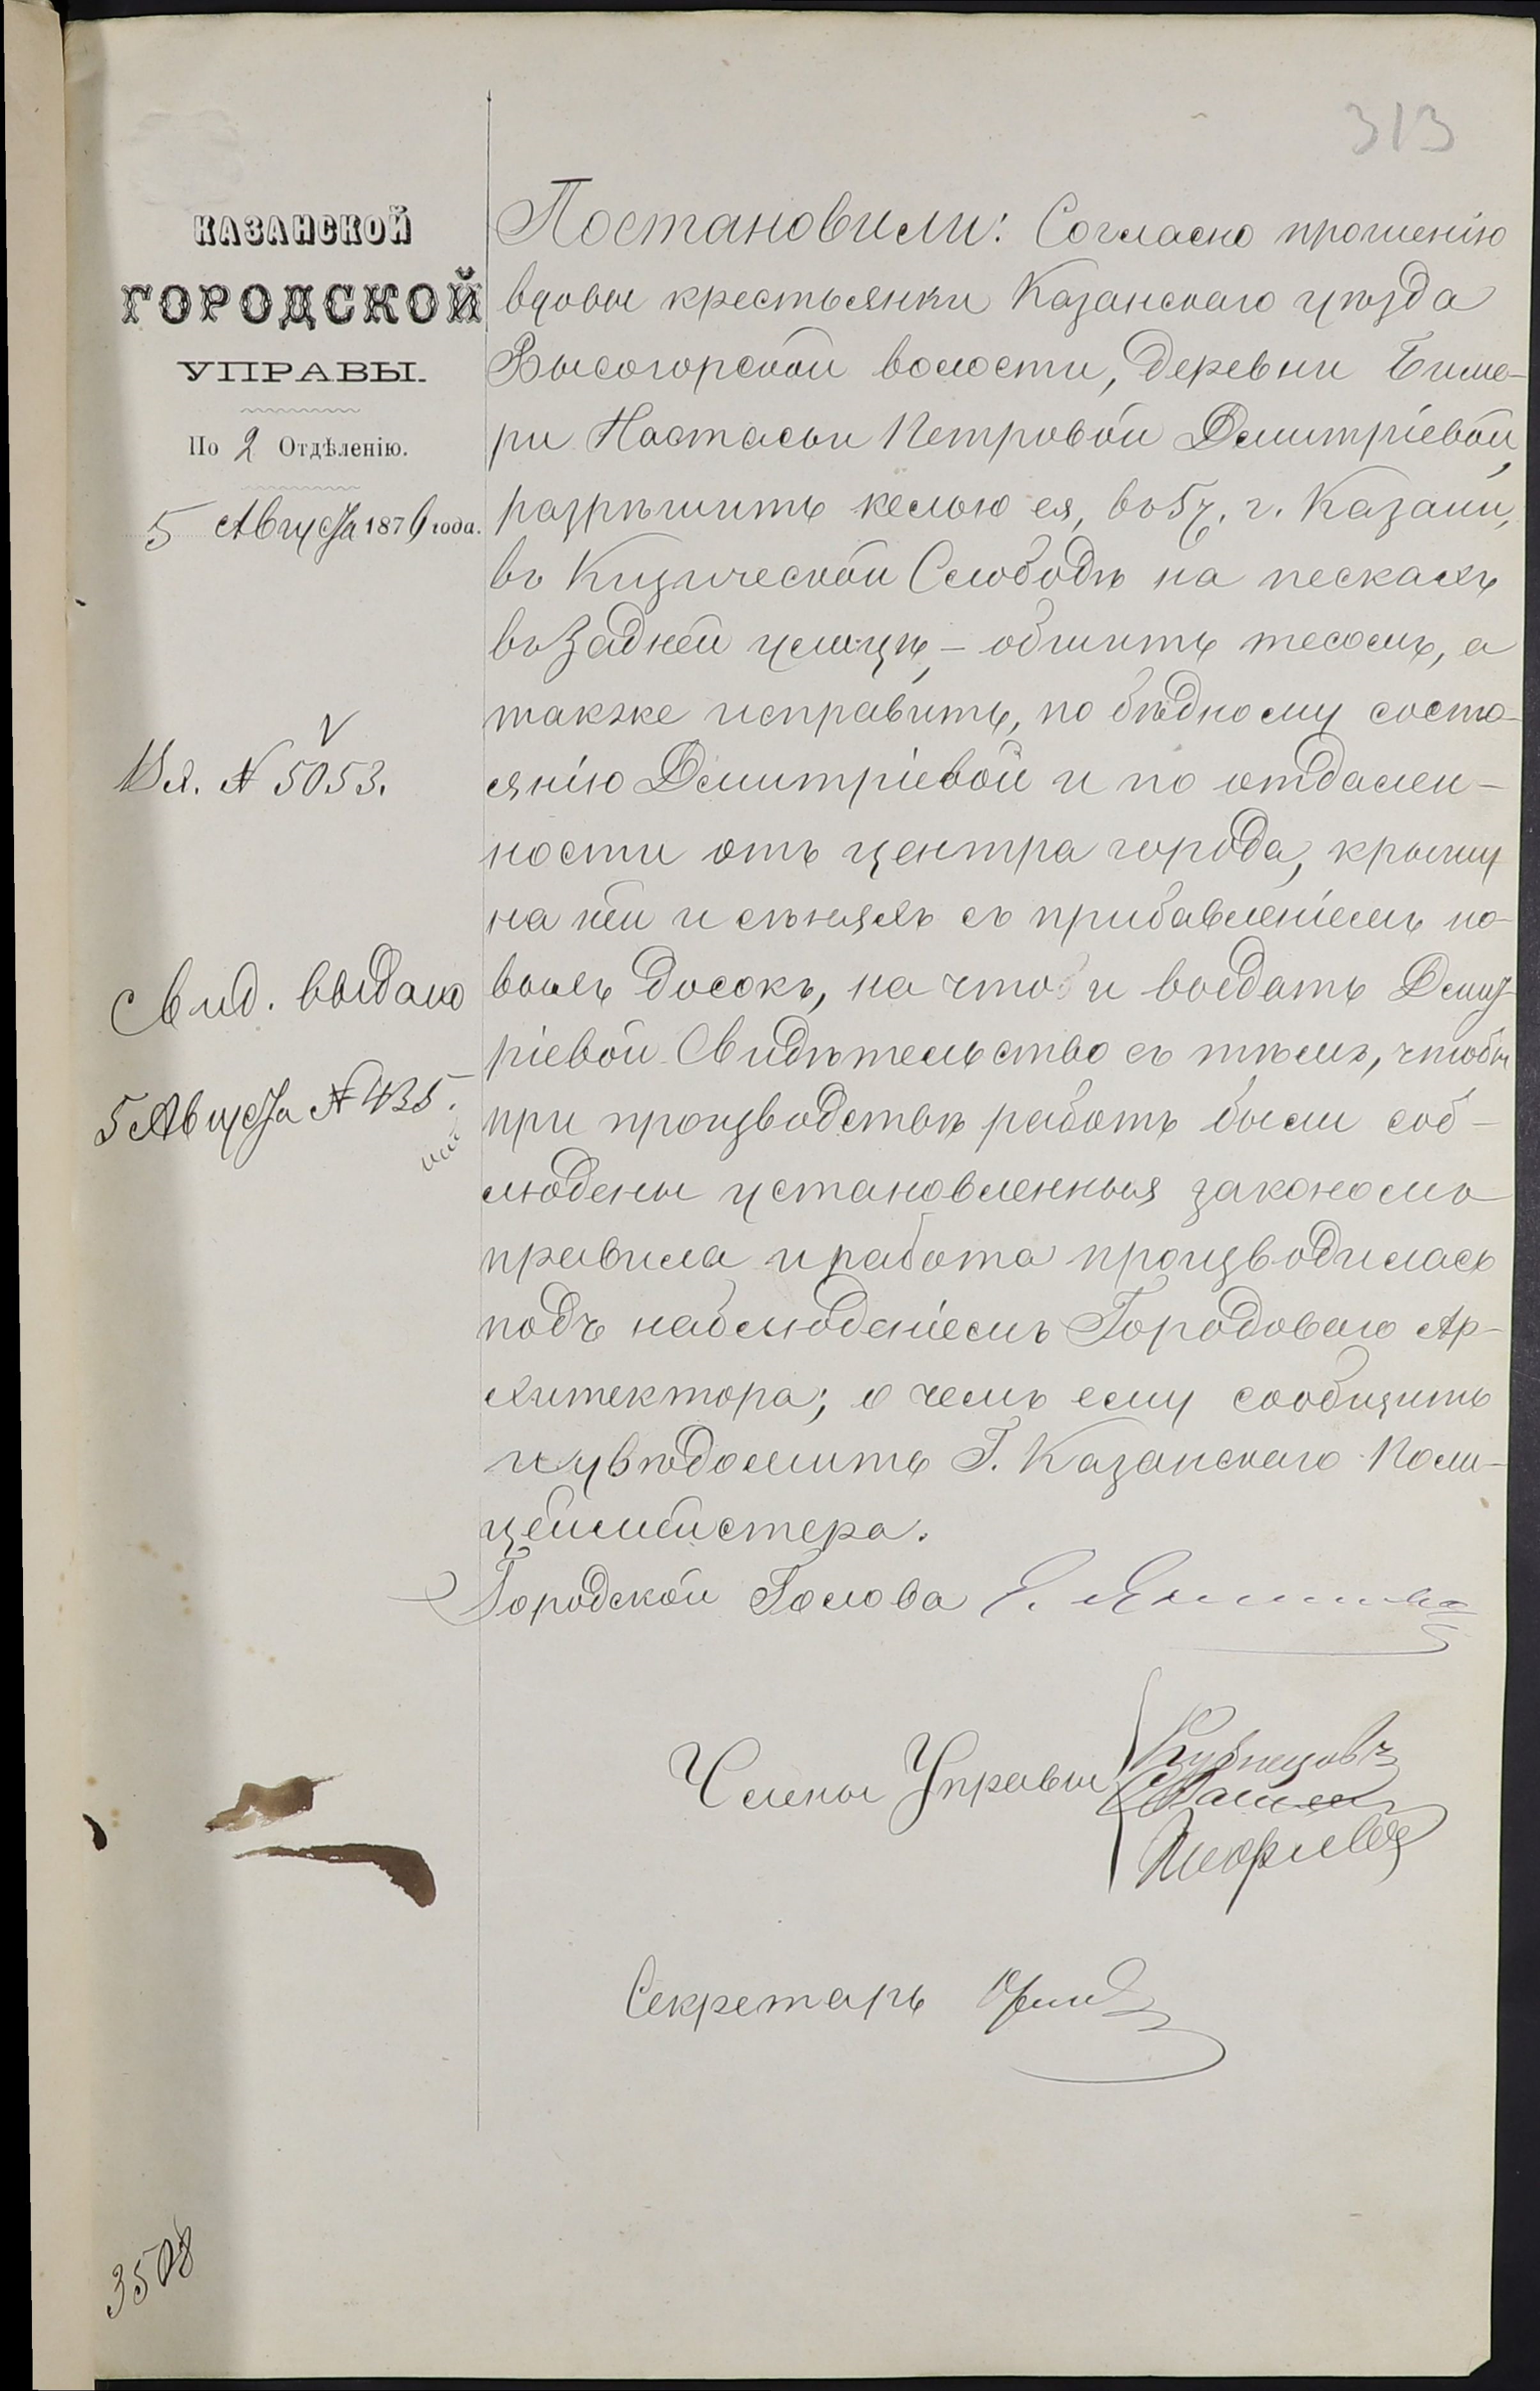 313
КАЗАНСКОЙ
ГОРОДСКОЙ
УПРАВЫ.
По 2 Отдѣленію.
5 Августа 1876 года.
Вх. № 5053.
Свид. выдано
5 Августа № 435.
Постановили: Согласно прошенію
вдовы крестьянки Казанскаго уѣзда
Высогорской волости, деревни Биме-
ри Настасьи Петровой Дмитріевой,
разрѣшить келью ея, въ 5 ч. г. Казани,
въ Кизической Слободѣ на пескахъ
въ Задней улицѣ, – обшить тесомъ, а
также исправить, по бѣдному состо-
янію Дмитріевой и по отдален-
ности отъ центра города, крышу
на ней и сѣняхъ съ прибавленіемъ но-
выхъ досокъ, на что и выдать Дмит-
ріевой Свидѣтельство съ тѣмъ, чтобы
при производствѣ работъ были соб-
людены установленныя закономъ
правила и работа производилась
подъ наблюденіемъ Городоваго Ар-
хитектора; о чемъ ему сообщить
и увѣдомить Г. Казанскаго Поли-
цеймейстера.
Городской Голова
Члены Управы Кузнецовъ
Секретарь
3508